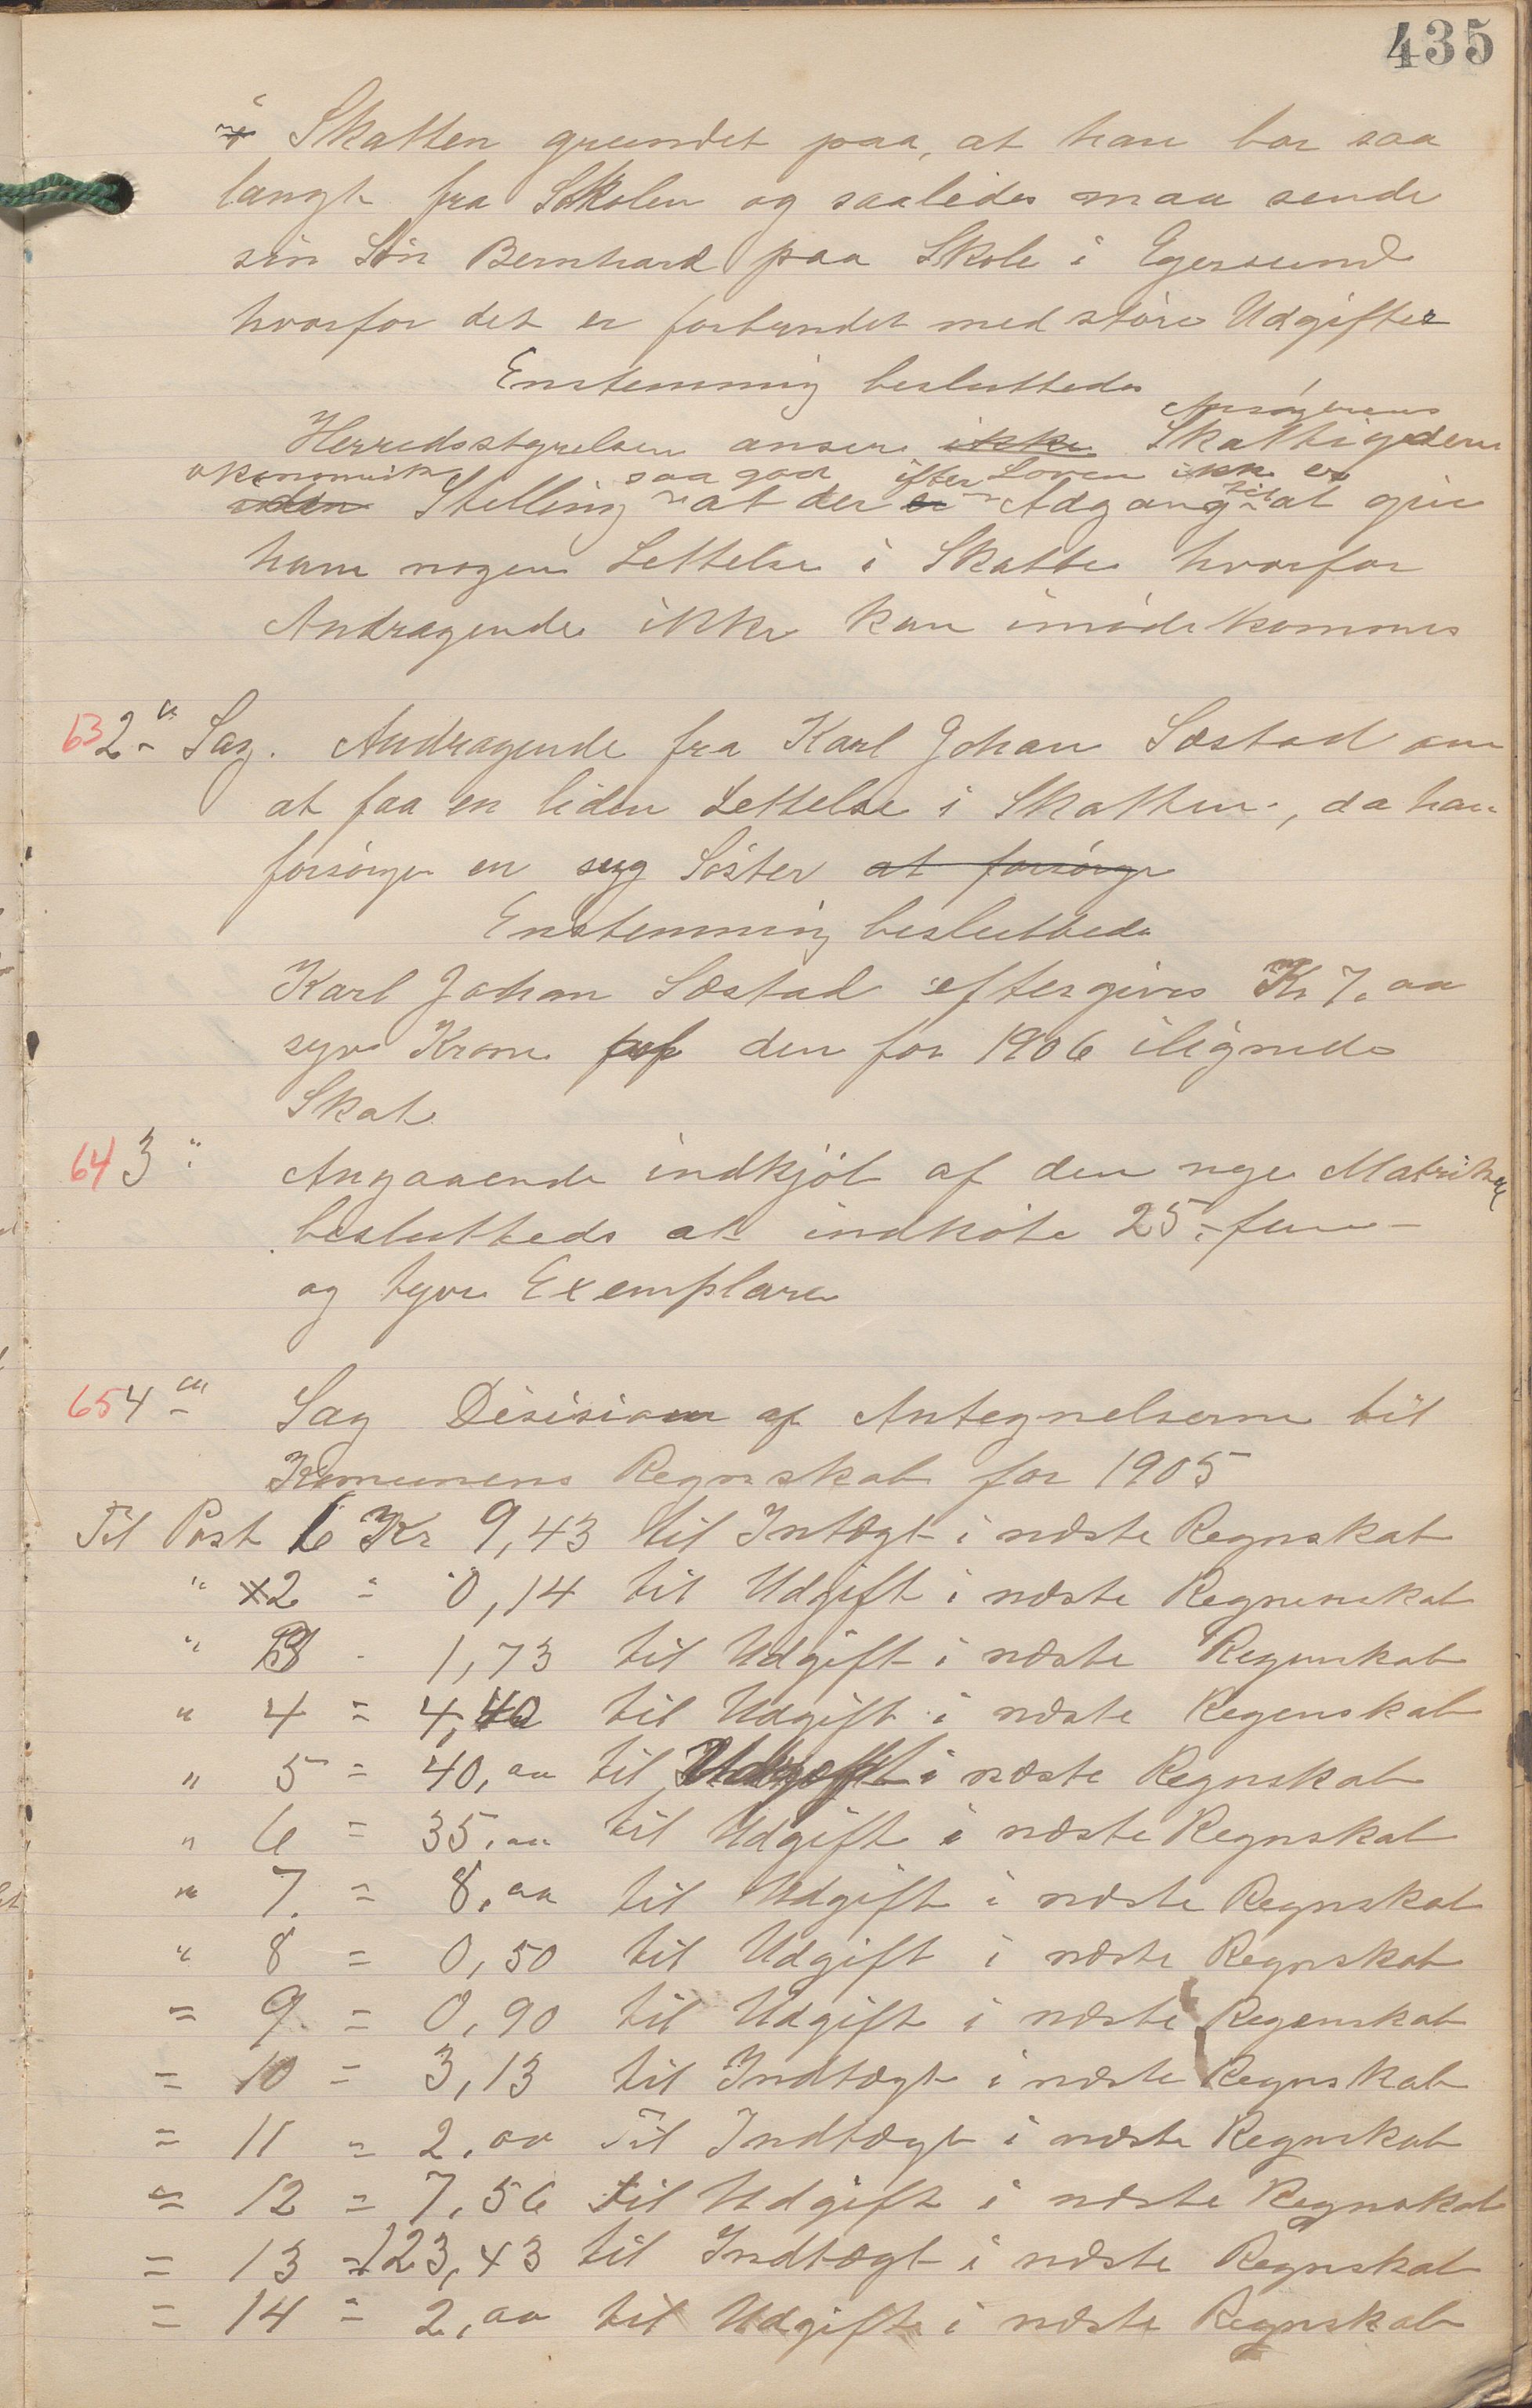 435
i Skatten grundet paa, at han bor saa
langt fra Skolen og saaledes maa sende
sin Sön Bernhard paa Skole i Egersund
hvorfor det er forbundet med störe Udgifter
Enstemmig besluttedes
Ansögerens
Herredsstyrelsen anser ikke Skattiyderen
økonomiske saa god efter Loven ikke er
Stilling at der er Adgang til at give
ham nogen Lettelse i Skatte hvorfor
Andragende ikke kan imödekommes
63 2en Sag. Andragende fra Karl Johan Sæstad om
at faa en liden Lettelse i Skatten, da han
forsörger en syg Söster at forsörge
Enstemmig besluttede
Karl Johan Sæstad eftergives Kr 7,00
syv Krone paa den for 1906 ilignede
Skat
64 3" Angaaende indkjöb af den nye Matrikel
besluttedes at indköbe 25 - fem -
og tyve Exemplarer
65 4de Sag Desision af Antegnelserne til
Komunens Regnskab for 1905
Til Post 1 Kr 9,43 til Intægt i næste Regnskab
" 2 " 0,14 til Udgift i næste Regnenskab
" 3 - 1,73 til Udgift i næste Regnskab
" 4 = 4,40 til Udgift i næste Regenskab
" 5 = 40,00 til Udgift i næste Regnskab
" 6 = 35,00 til Udgift i næste Regnskab
" 7. = 8,00 til Udgift i næste Regnskab
" 8 = 0,50 til Udgift i næste Regnskab
= 9 = 0,90 til Udgift i næste Regenskab
= 10 = 3,13 til Indtægt i næste Regnskab
= 11 = 2,00 Til Indtægt i næste Regnskab
= 12 = 7,56 til Udgift i næste Regnskab
= 13 = 123,43 til Indtægt i næste Regnskab
= 14 = 2,00 til Udgift i næste Regnskab